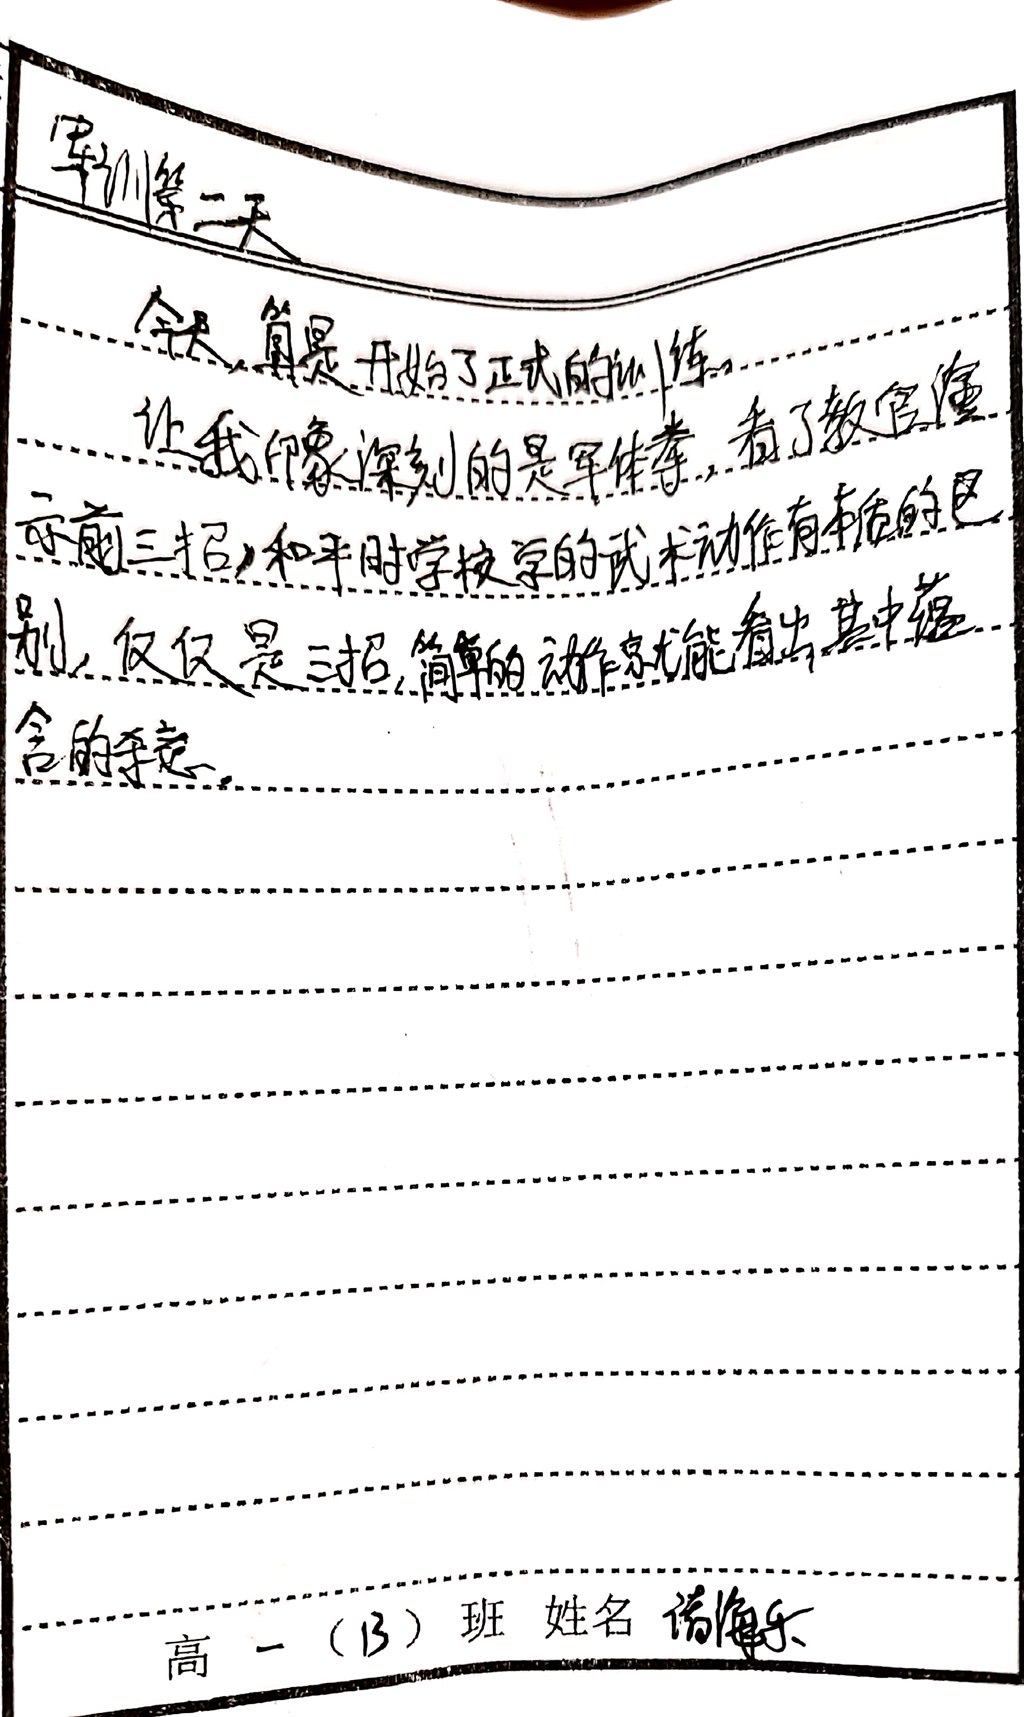 军训第二天
今天,算是开始了正式的训练。
让我印象深刻的是军体拳,看了教官演
示前三招,和平时学校学的武术动作有本质的区
别,仅仅是三招,简单的动作就能看出其中蕴
含的杀意。
高一(13)班 姓名 诸海乐